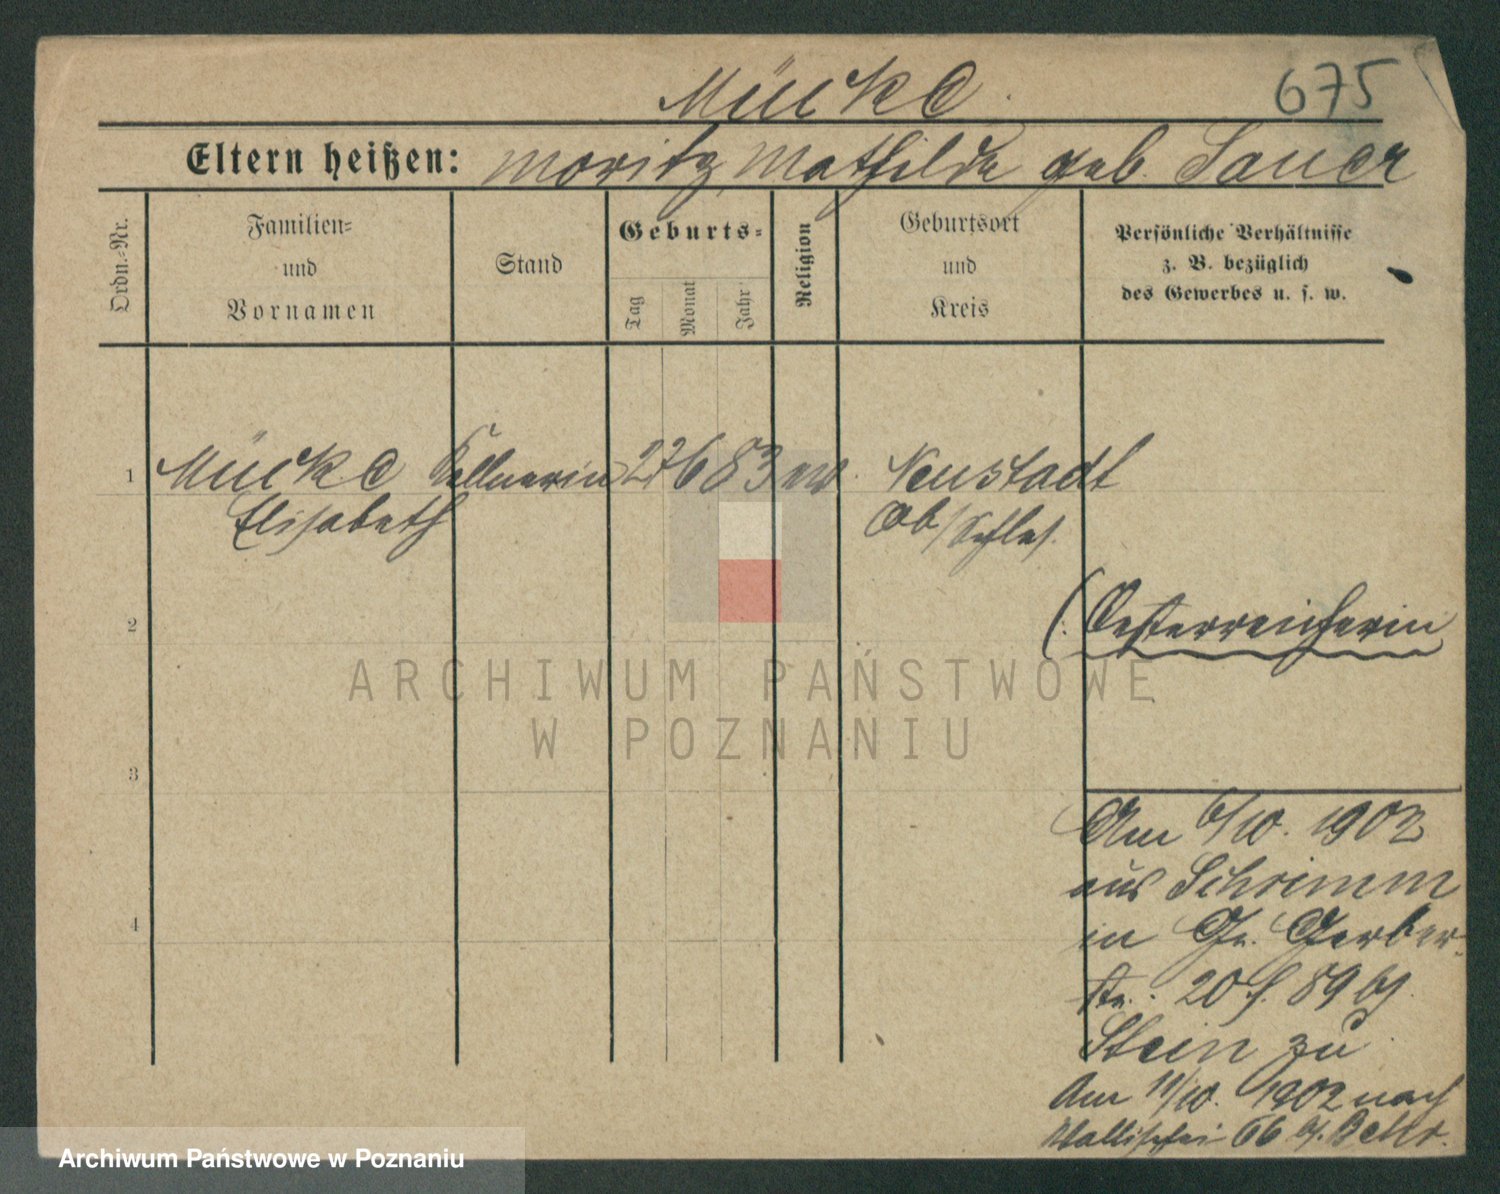 Mücke
675
Eltern heißen: Moritz, Mathilde geb. Sauer
Ordn.-Nr.
Familien-
und
Vornamen
Stand
Geburts-
Tag
Monat
Jahr
Religion
Geburtsort
und
Kreis
Persönliche Verhältnisse
z. B. bezüglich
des Gewerbes u. s. w.
1 Mücke Kellnerin 27 6 83 ev. Neustadt
Elisabeth Ob/Schles.
(: Oesterreicherin
2
ARCHIWUM PAŃSTWOWE
W POZNANIU
3
Am 6/10. 1902
aus Schrimm
in Gr. Gerber-
4
str. 20
Stein zu
Am 11/10. 1902 nach
Wallischei 66
Archiwum Państwowe w Poznaniu